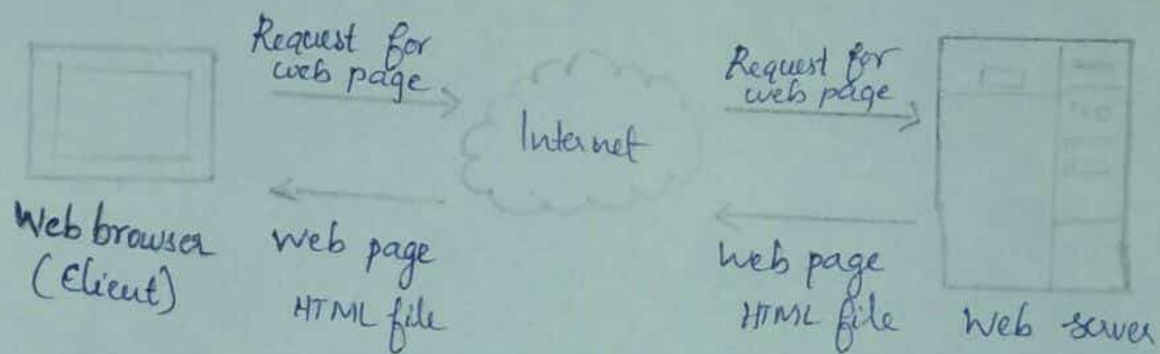 Request for
web page
Request for
web page
Internet
Web browser
(Client)
Web page
HTML file
Web page
HTML file
Web server